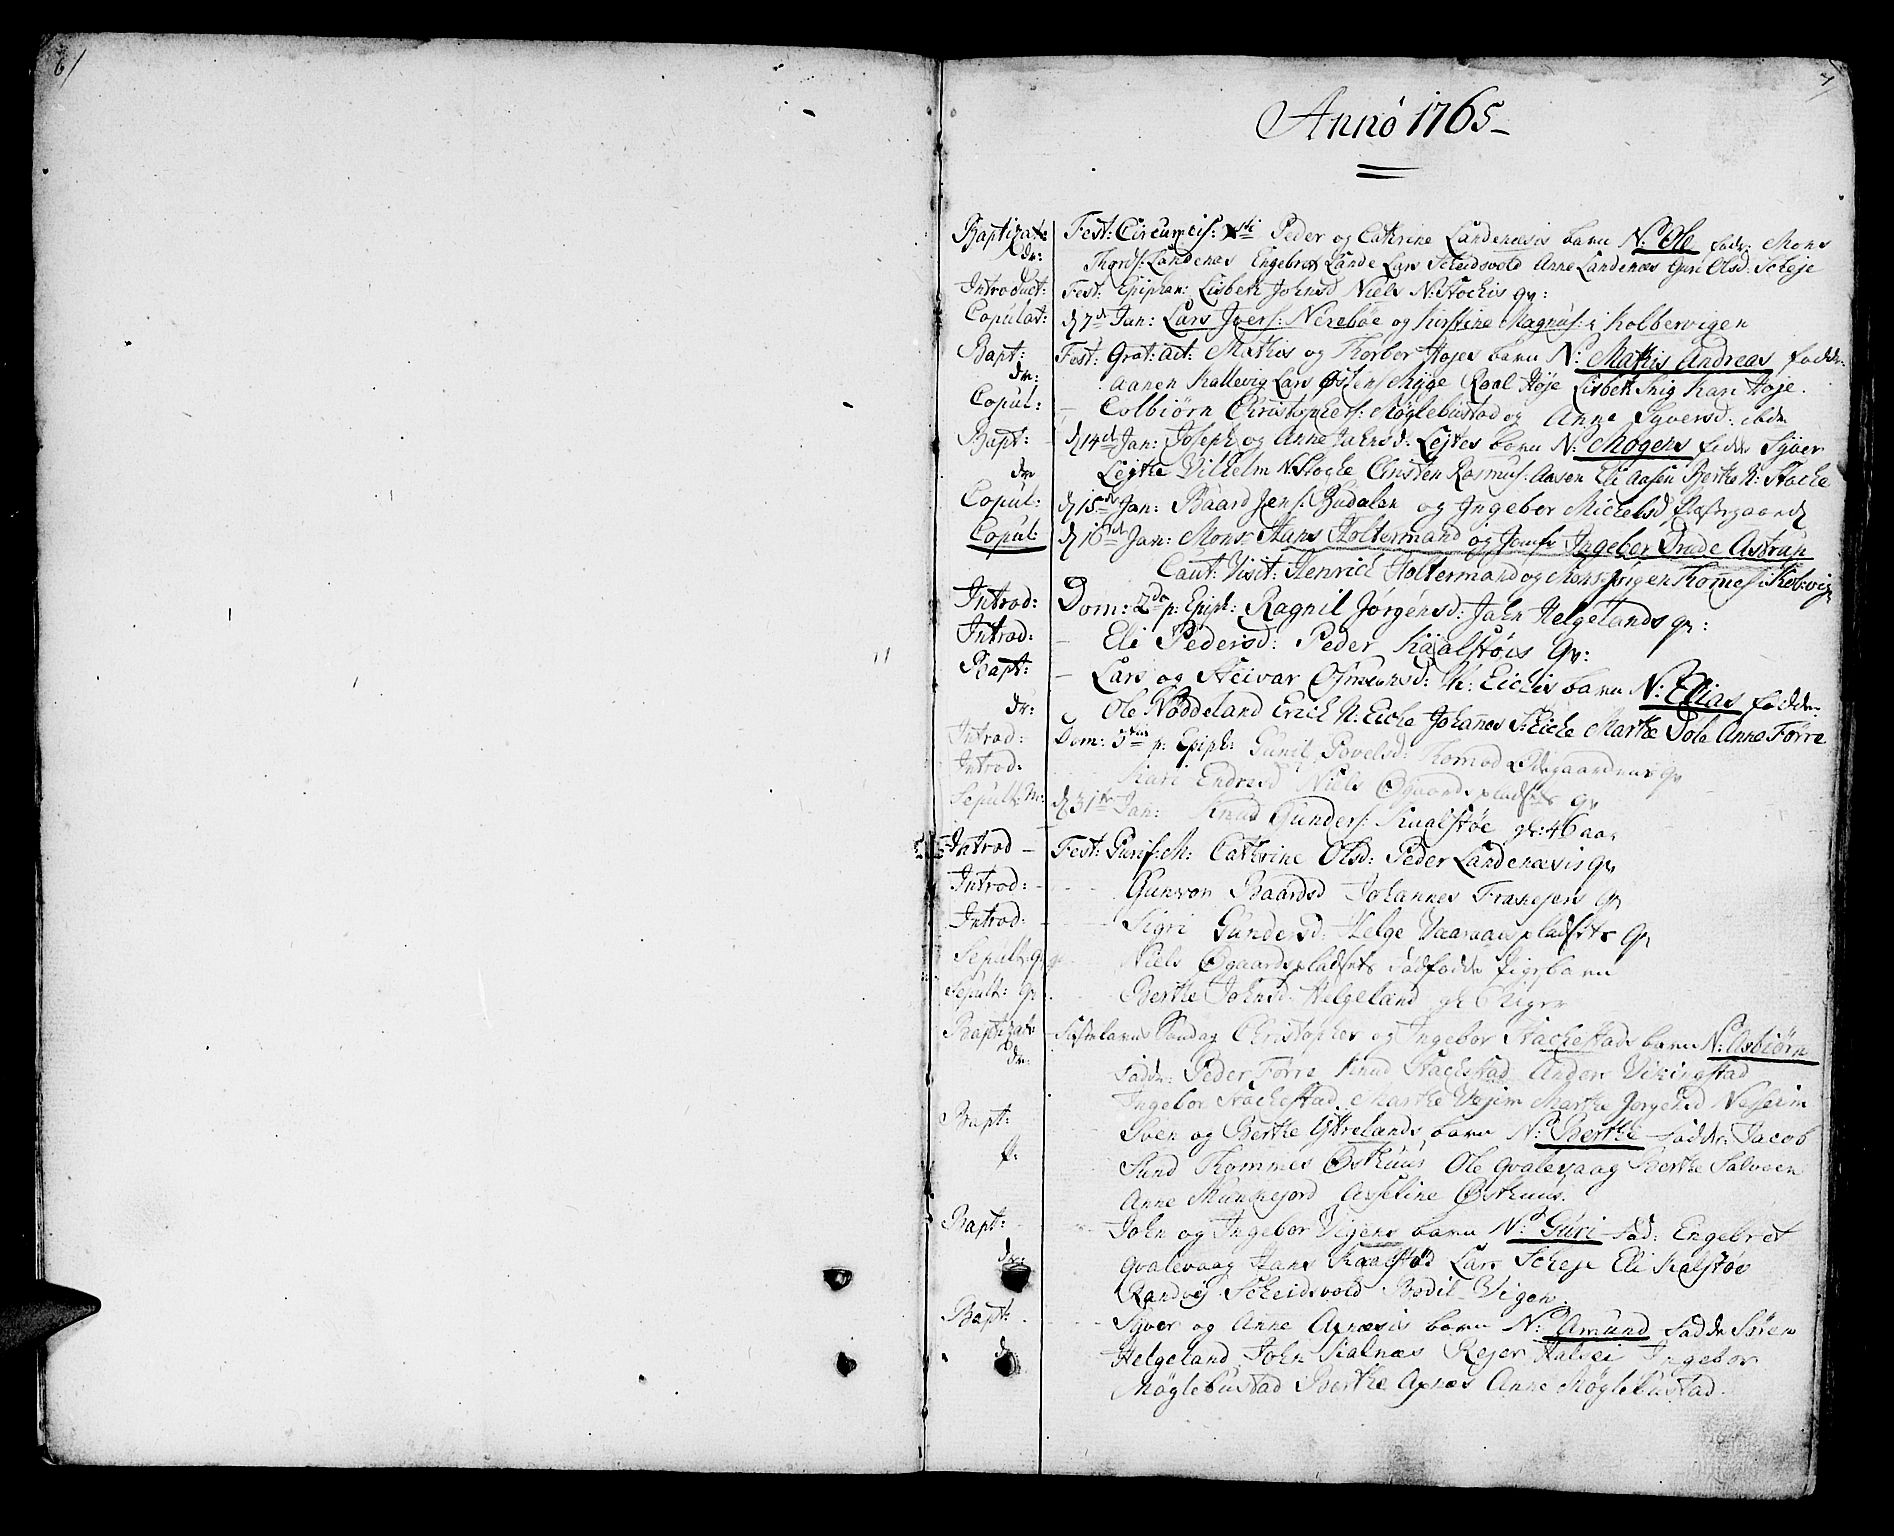 6/
7/
Anno 1765
Baptizat: Fest: Circumcis: Xsti Peder og Cathrine Landenæsis barn N: Ole fadr: Mons
dr: Thords: Landenæs Engebret Lande Lars Scheidsvold Anne Landenæs Guri Olsd: Scheje
Introduct: Fest: Epiphan: Lisbeth Johnsd Niels N: Stockis qv:
Copulat: d 7d Jan: Lars Jvers: Nerebøe og Kirstine Magnus: i Kolbervigen
Bapt: Fest: Grat: act: Mathis og Thorbor Højes barn N: Mathis Andreas fadde:
dr: Aanen Kallevig Lars Østensen Myge Roal Høje Lisbeth Snig Kari Høje.
Copul: Colbiørn Christophers: Møglebustad og Anne Syversd: ibdm
Bapt: d 14d Jan: Joseph og Anne Johnsd: Lejtes barn N: Mogens fadde Syver
dr Lejthe Vilhelm N Stoche Christen Rasmus: Aasen Eli Aasen Berthe N: Stoche
Copul: d 15de Jan: Baard Jens: Budalen og Ingebor Michelsd Præstgaard
Copul: d 16d Jan: Mons: Hans Holtermand og Jomfr Ingeber Drude Astrup
Caut: Visit: Henrich Holtermand og Mons: Jørgen Thomes: Kolbvig
Introd: Dom: 2da p: Epiph: Ragnil Jørgensd: John Helgelands qv:
Introd: Eli Pedersd: Peder Kaalstøis qv:
Bapt: Lars og Steivar Osmunsd: N: Eichis barn N: Elias fadde:
dr: Ole Nøddeland Erich N: Eiche Johannes S: Eiche Marthe Dole Anne Førre
Introd: Dom: 3tia p: Epiph: Gunil Povelsd: Thomod Ødegaardens qv
Introd: Kari Endresd Niels Øgaards pladsets qv
Sepult: M: d 31te Jan: Knud Gunders: Kualstøe gl: 46 aar
Introd Fest: Purif: M: Cathrine Olsd: Peder Landenæsis qv
Introd: Gunvor Baardsd Johannes Frakejens qv
Introd: Sigri Gundersd: Helge pladsets qv
Sepult: qv Niels Øgaards pladsets dødfødde Pigebarn
Sepult: qv: Berthe Johnsd: Helgeland gl: 6 Uger
Baptizat: Fastelavns Søndag Christopher og Ingebor Stachestads barn N: Asbiørn
dr: fadde: Peder Førre Knud Stachestad Anders Vikingstad
Ingebor Stachestad Marthe Vejim Marthe Jørgensd Nessheim
Bapt: Sven og Berthe Yttrelands barn N: Berthe fadde: Jacob
f: Sund Thommes Østhuus Ole Qvalevaag Berthe Salveen
Anne Munkejord Asseline Østhuus.
Bapt: John og Ingebor Vigens barn N: Guri fad: Engebret
dr: Qvalevaag Hans Kaalstød Lars Scheje Eli Kalstøe
Randvej Scheidsvold Bodil Vigen.
Bapt: Syver og Anne Apnæsis barn N: Amund fadde Søren
dr: Helgeland John Kalnæs Rejer Halsei Ingebor
Møglebustad Berthe Apnæs Anne Møglebustad.